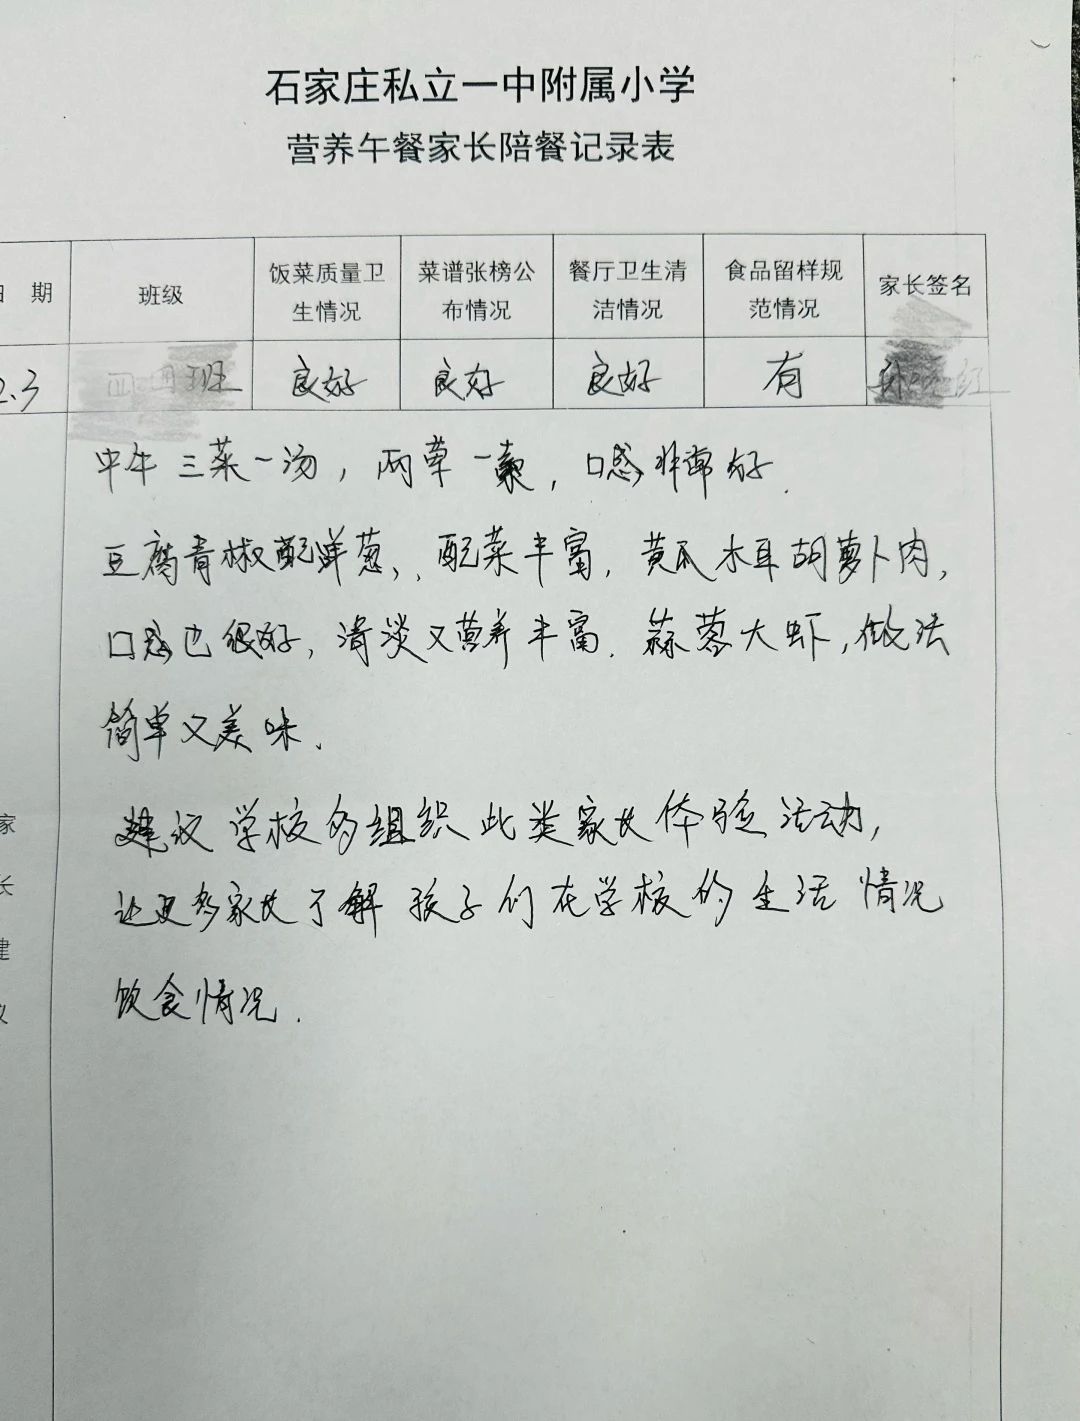 石家庄私立一中附属小学
营养午餐家长陪餐记录表
日 期 班级 饭菜质量卫生情况 菜谱张榜公布情况 餐厅卫生清洁情况 食品留样规范情况 家长签名
2.3 班 良好 良好 良好 有
中午三菜一汤，两荤一素，口感非常好.
豆腐青椒配洋葱，配菜丰富，黄瓜木耳胡萝卜肉，
口感也很好，清淡又营养丰富.蒜蓉大虾，做法
简单又美味.
建议学校多组织此类家长体验活动，
让更多家长了解孩子们在学校的生活情况
饮食情况.
家
长
建
议